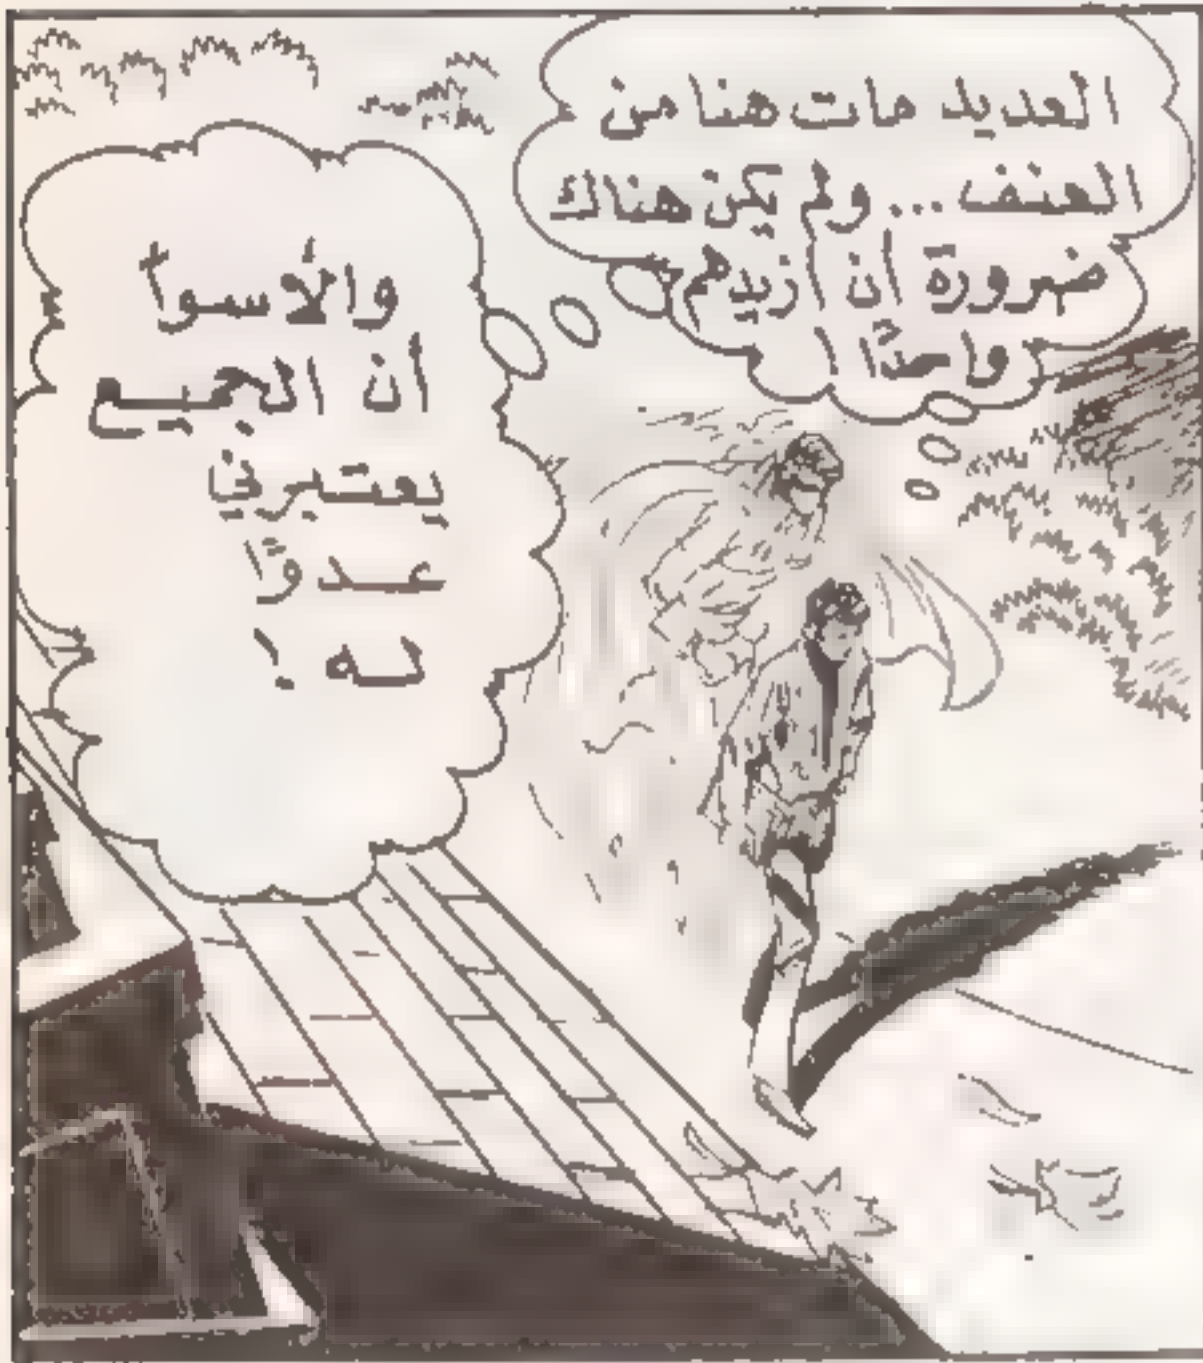 العديد مات هنا من
العنف... ولم يكن هناك
ضرورة أن أزيدهم
واحدًا !
والأسوأ
أن الجميع
يعتبرني
عدوًّا
له !